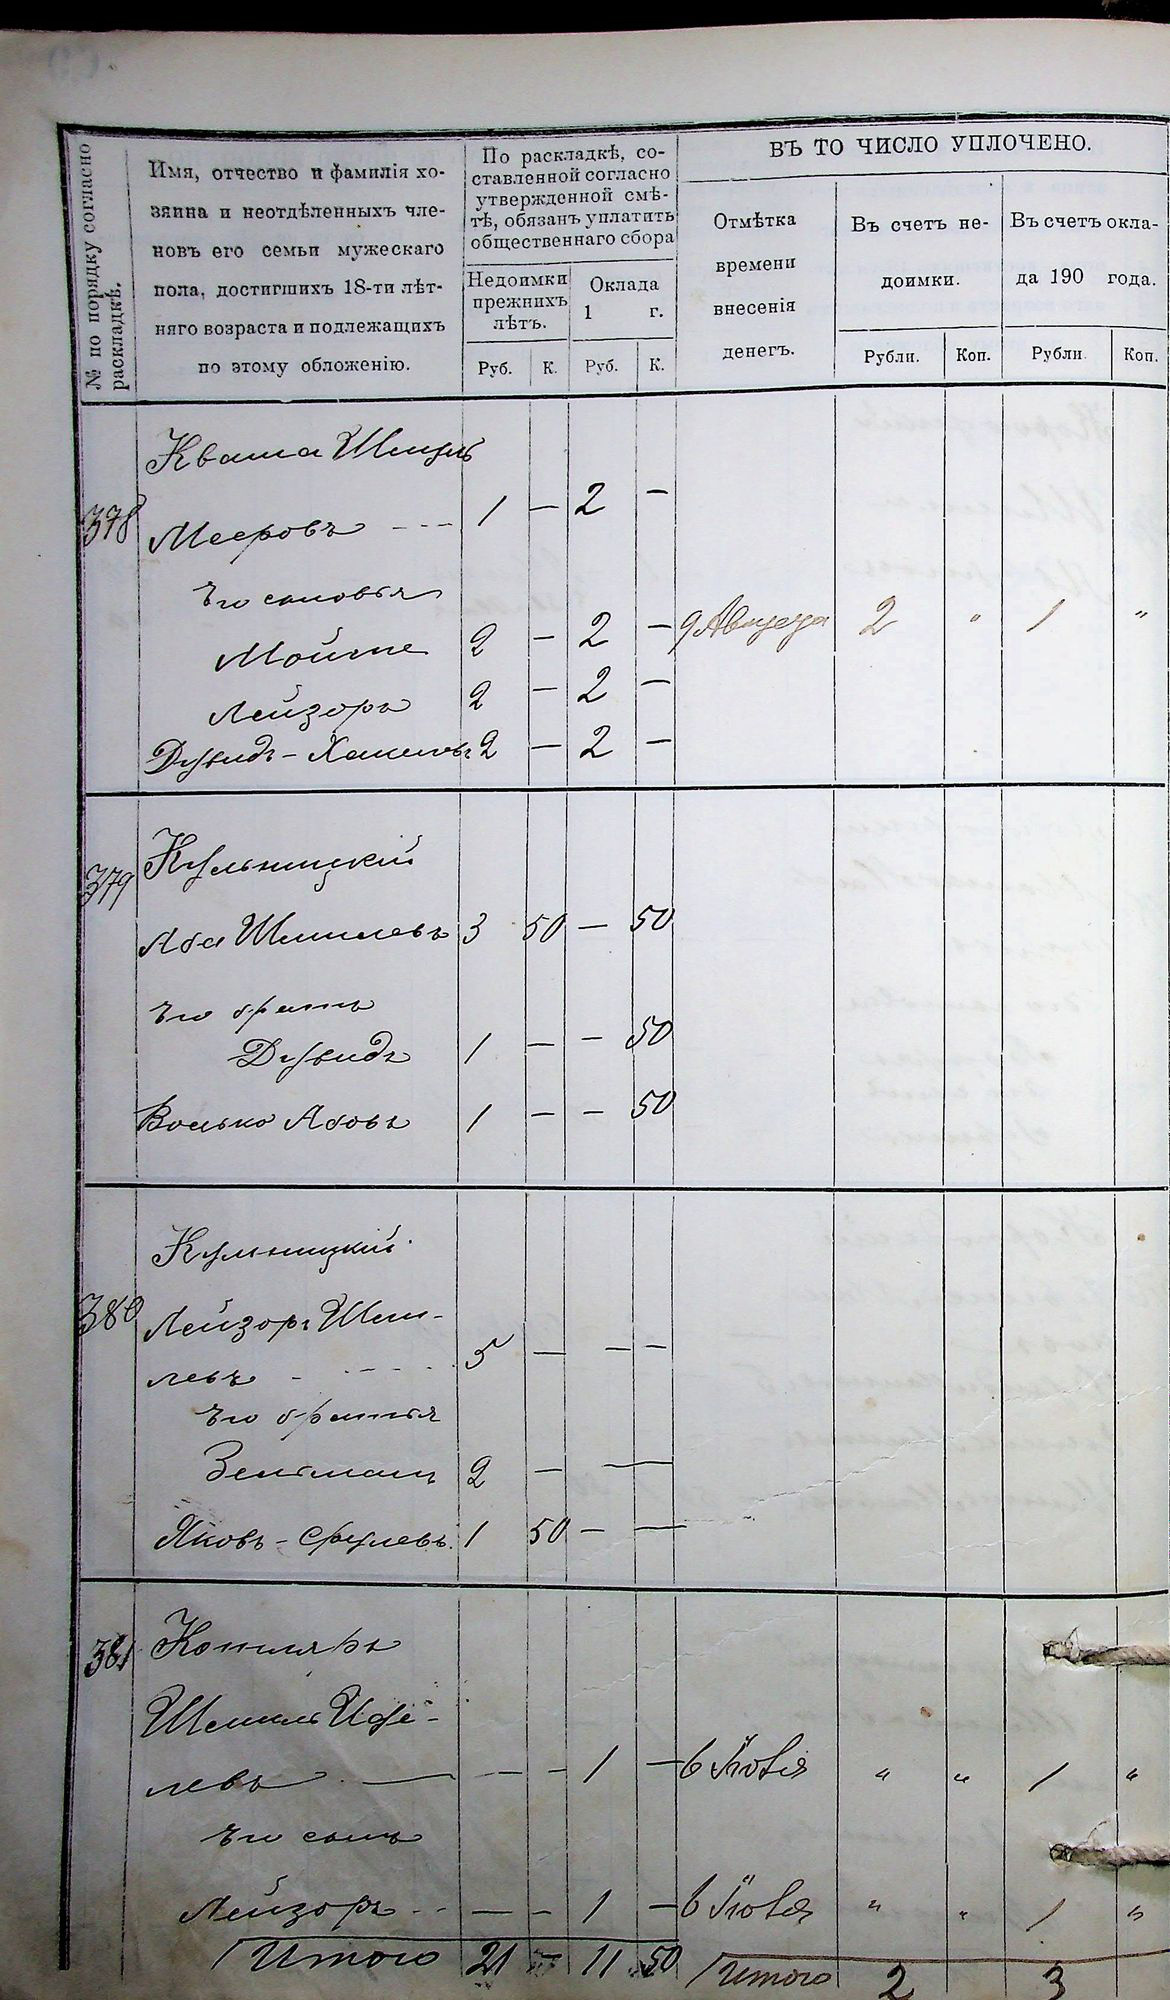 № по порядку согласно раскладкѣ.
Имя, отчество и фамилія хо-
зяина и неотдѣленныхъ чле-
новъ его семьи мужескаго
пола, достигшихъ 18-ти лѣт-
няго возраста и подлежащихъ
по этому обложенію.
По раскладкѣ, со-
ставленной согласно
утвержденной смѣ-
тѣ, обязанъ уплатить
общественнаго сбора
Недоимки
прежнихъ
лѣтъ.
Оклада
1 г.
Руб. К. Руб. К.
ВЪ ТО ЧИСЛО УПЛОЧЕНО.
Отмѣтка
времени
внесенія
денегъ.
Въ счетъ не-
доимки.
Въ счетъ окла-
да 190 года.
Рубли. Коп. Рубли. Коп.
Кваша
378 Мееровъ - - - 1 — 2 —
Его сыновья
Мойше 2 — 2 — 9 Августа 2 " 1 "
Лейзоръ 2 — 2 —
Дувидъ - 2 — 2 —
379 Кульницкій
Аба Шмилевъ 3 50 — 50
Его братъ
Дувидъ 1 — — 50
Волько Абовъ 1 — — 50
380 Кулницкій
Лейзоръ Шми-
левъ - - - - 5 — — —
Его братья
Зельманъ 2 — —
Яковъ - Срулевъ 1 50 — —
381 Котляръ
Шмиль
левъ — — — 1 — 6 Іюля " " 1 "
Его сынъ
Лейзоръ - - — — 1 — 6 Іюля " " 1 "
Итого 21 — 11 50 Итого 2 3